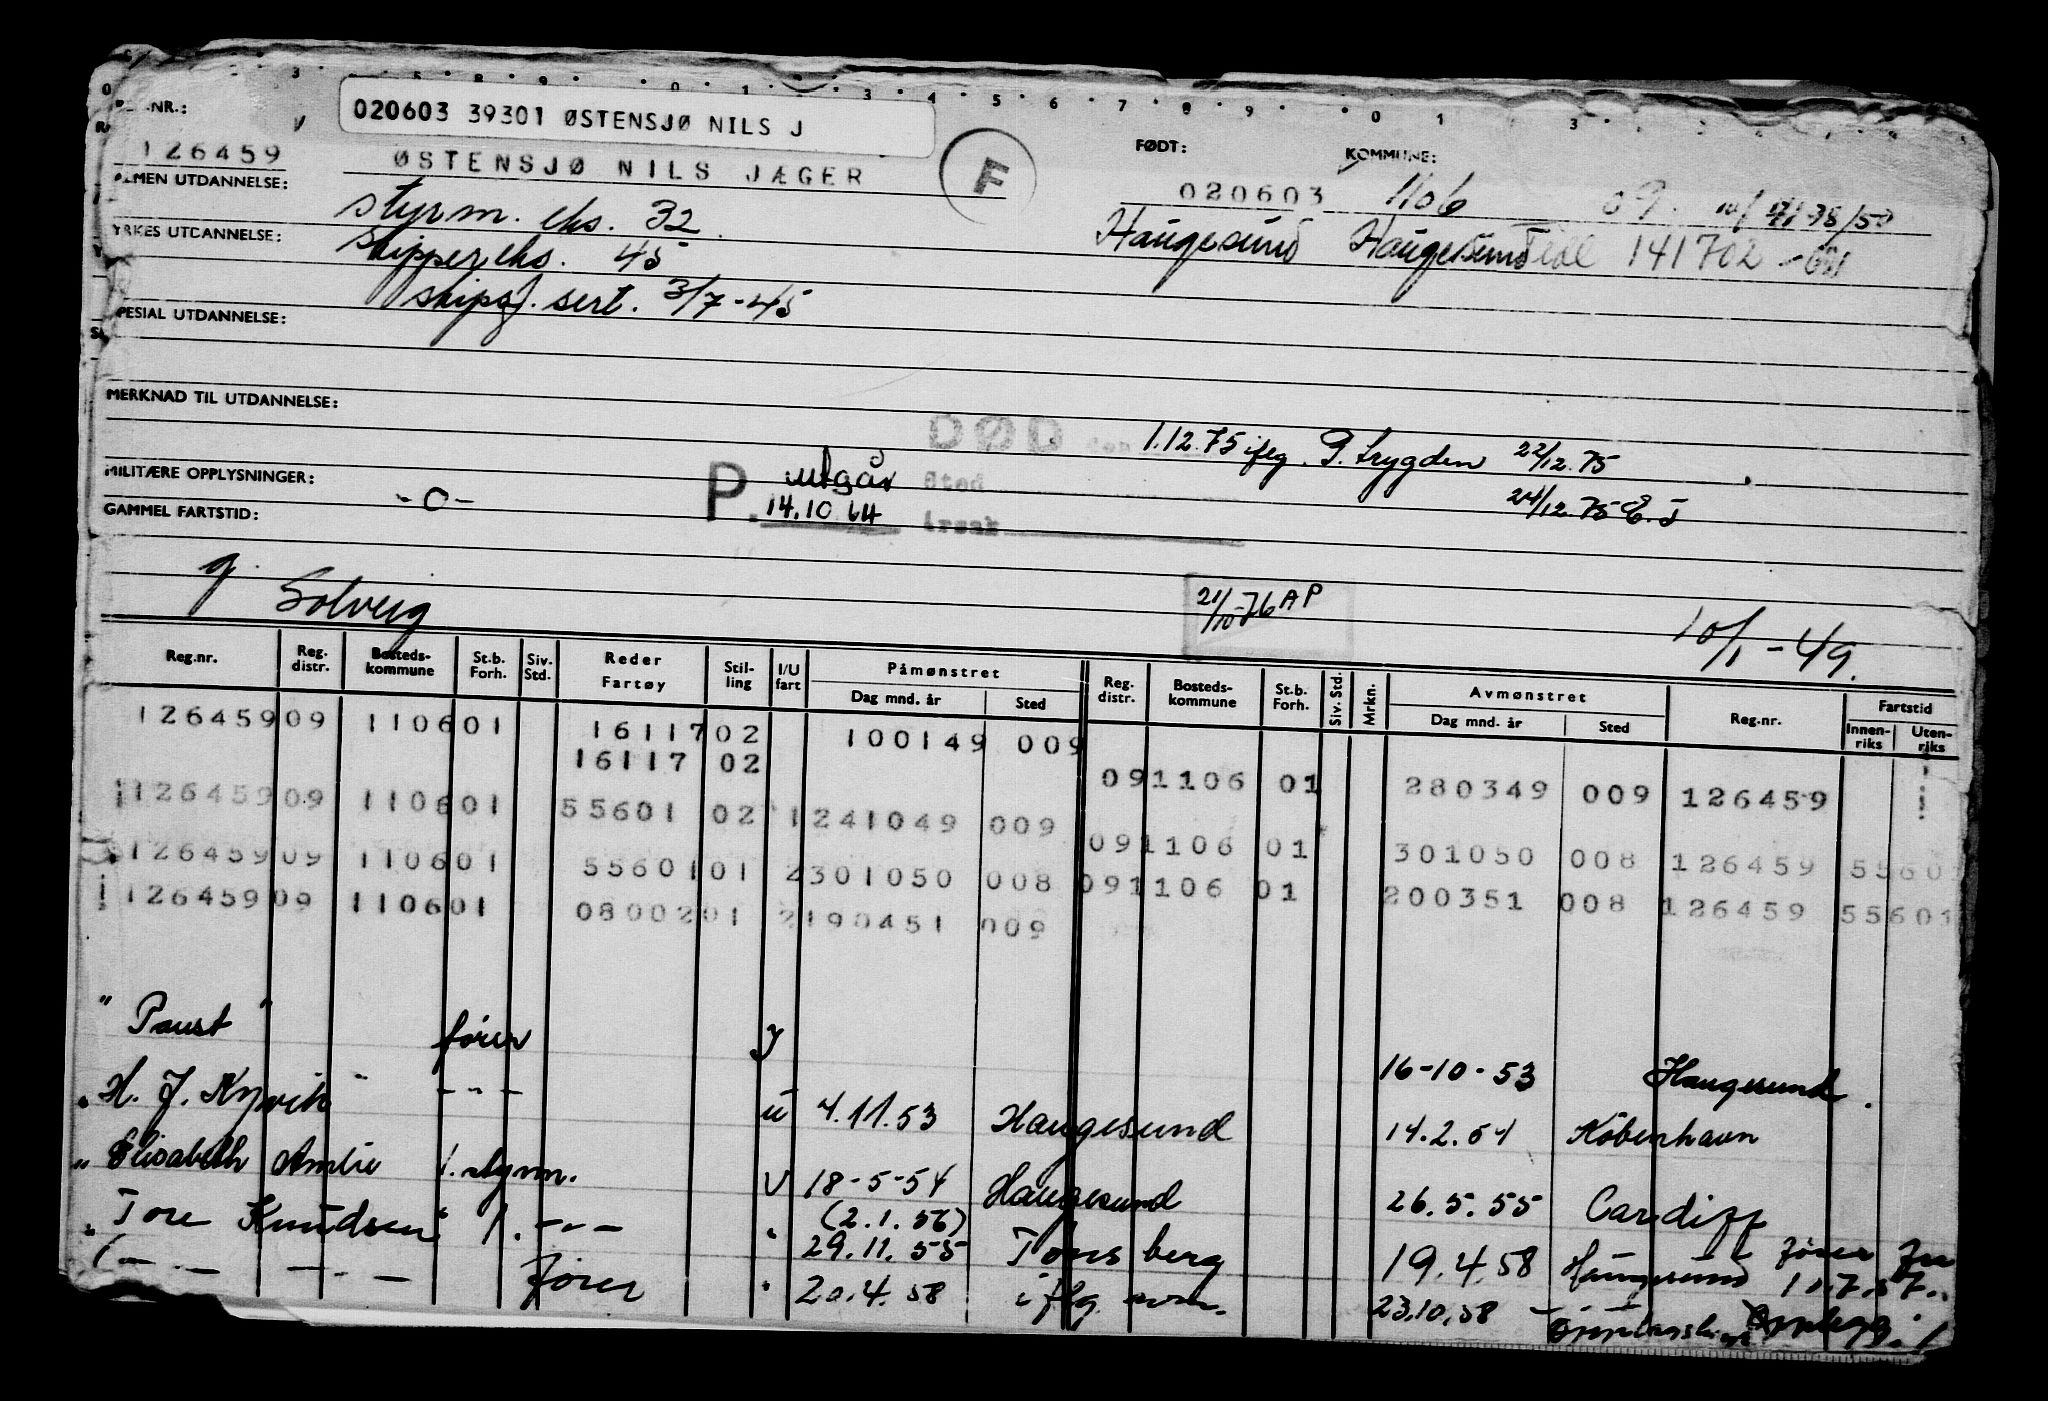 020603 39301 ØSTENSJØ NILS J
126459
ØSTENSJØ NILS JÆGER
F
FØDT:
KOMMUNE:
020603 1106 09
ALMEN UTDANNELSE:
styrm. eks. 32
Haugesund Haugesund 141702
YRKES UTDANNELSE:
skippereks. 45
skipsf. sert. 3/7-45
SPESIAL UTDANNELSE:
MERKNAD TIL UTDANNELSE:
DØD den 1.12.75 iflg. 22/12.75
MILITÆRE OPPLYSNINGER:
-0-
P. utgår Sted 24/12.75 E.J
GAMMEL FARTSTID:
14.10.64 årsak
g. Solveig
21/10-76 AP
10/1-49.
Reg.nr. Reg. distr. Bosteds-kommune St.b. Forh. Siv. Std. Reder Fartøy Stil-ling I/U fart Påmønstret Dag mnd. år Sted Reg. distr. Bosteds-kommune St.b. Forh. Siv. Std. Mrkn. Avmønstret Dag mnd. år Sted Reg.nr. Fartstid Innen-riks Uten-riks
126459 09 1106 01 16117 02 100149 009
16117 02 09 1106 01 280349 009 126459
126459 09 1106 01 55601 02 1 241049 009
09 1106 01 301050 008 126459 5560
126459 09 1106 01 55601 01 2 301050 008 09 1106 01 200351 008 126459 55601
126459 09 1106 01 08002 01 2 190451 009
"Paust" fører 16-10-53 Haugesund.
"H. J. Kyvik" -"- u 4.11.53 Haugesund 14.2.54 København
"Elisabeth Amlie 1. styrm. u 18-5-54 Haugesund 26.5.55 Cardiff
(2.1.56)
"Tore Knudsen" 1. -"- " 29.11.55 Tønsberg 19.4.58 Haugesund fører
-"- -"- fører " 20.4.58 iflg. 23.10.58